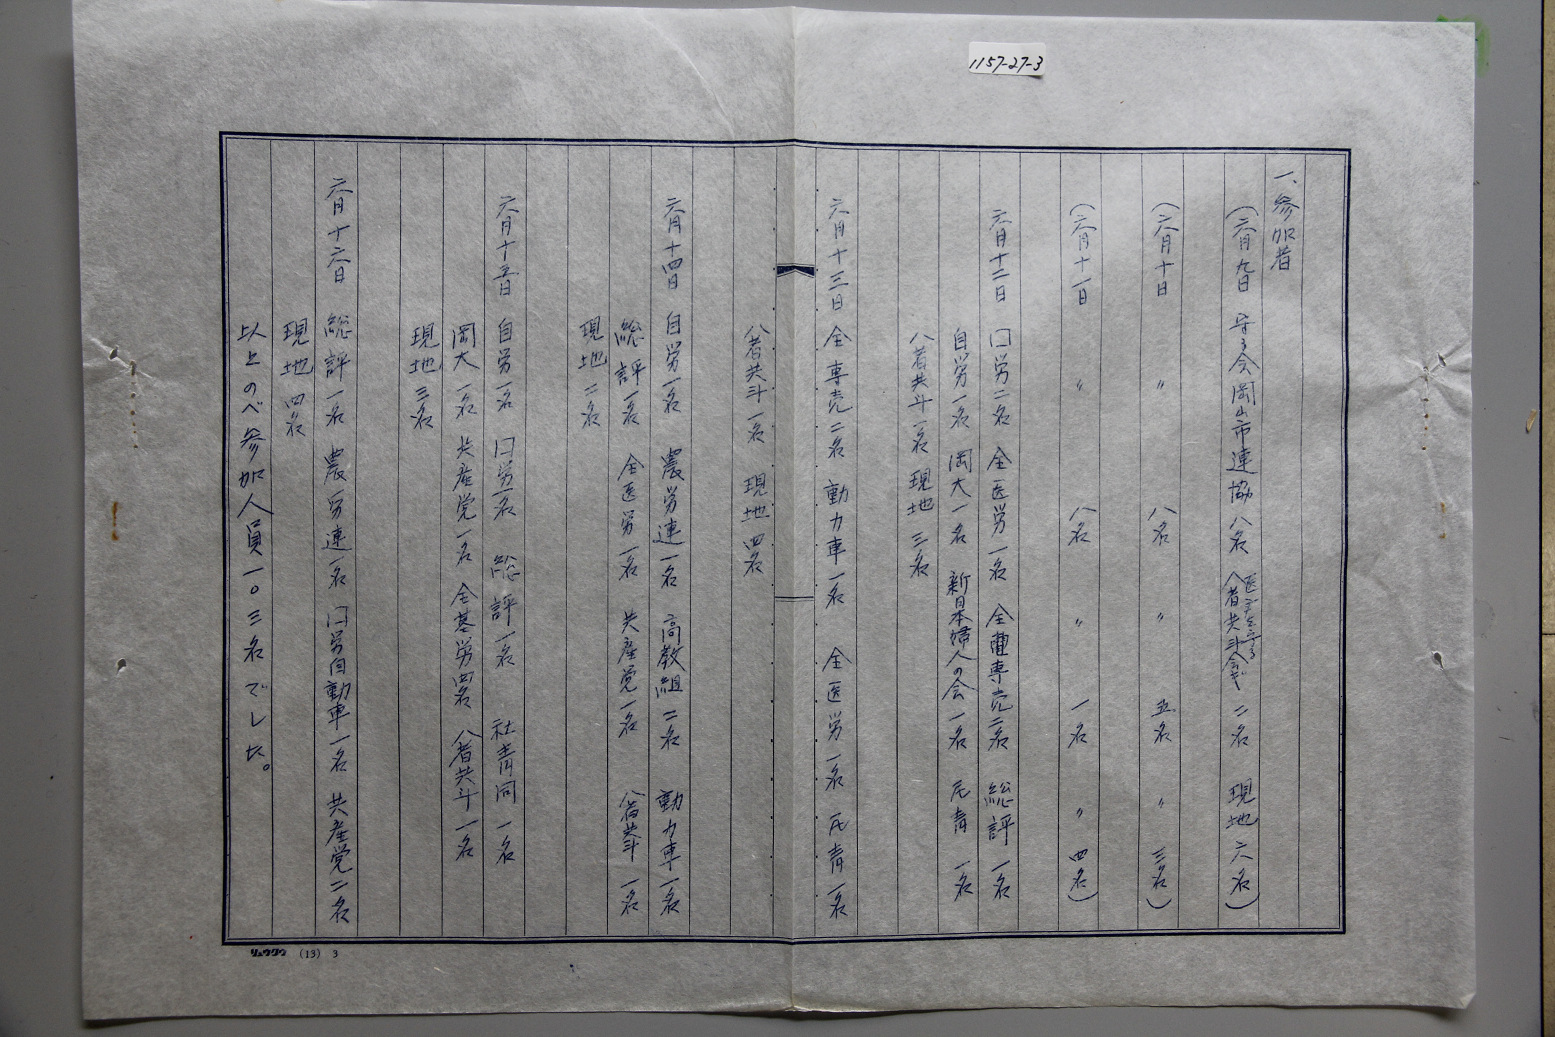 1157-27-3
一、参加者
(六月九日 守る会岡山市連協 八名 八者共斗会ギ 二名 現地 六名)
(六月十日 〃 八名 〃 五名 〃 三名)
(六月十一日 〃 八名 〃 一名 〃 四名)
六月十二日 口労二名 全医労一名 全専売二名 総評一名
自労一名 岡大一名 新日本婦人の会一名 民青 一名
八者共斗一名 現地 三名
六月十三日 全専売二名 動力車一名 全医労一名 民青一名
八者共斗一名 現地 四名
六月十四日 自労一名 農労連一名 高教組二名 動力車一名
総評一名 全医労一名 共産党一名 八者共斗 一名
現地 二名
六月十五日 自労一名 口労一名 総評一名 社青同 一名
岡大一名 共産党一名 全基労四名 八者共斗一名
現地三名
六月十六日 総評一名 農労連一名 口労自動車一名 共産党二名
現地 四名
以上のべ参加人員一〇三名でした。
リュウクウ (13) 3